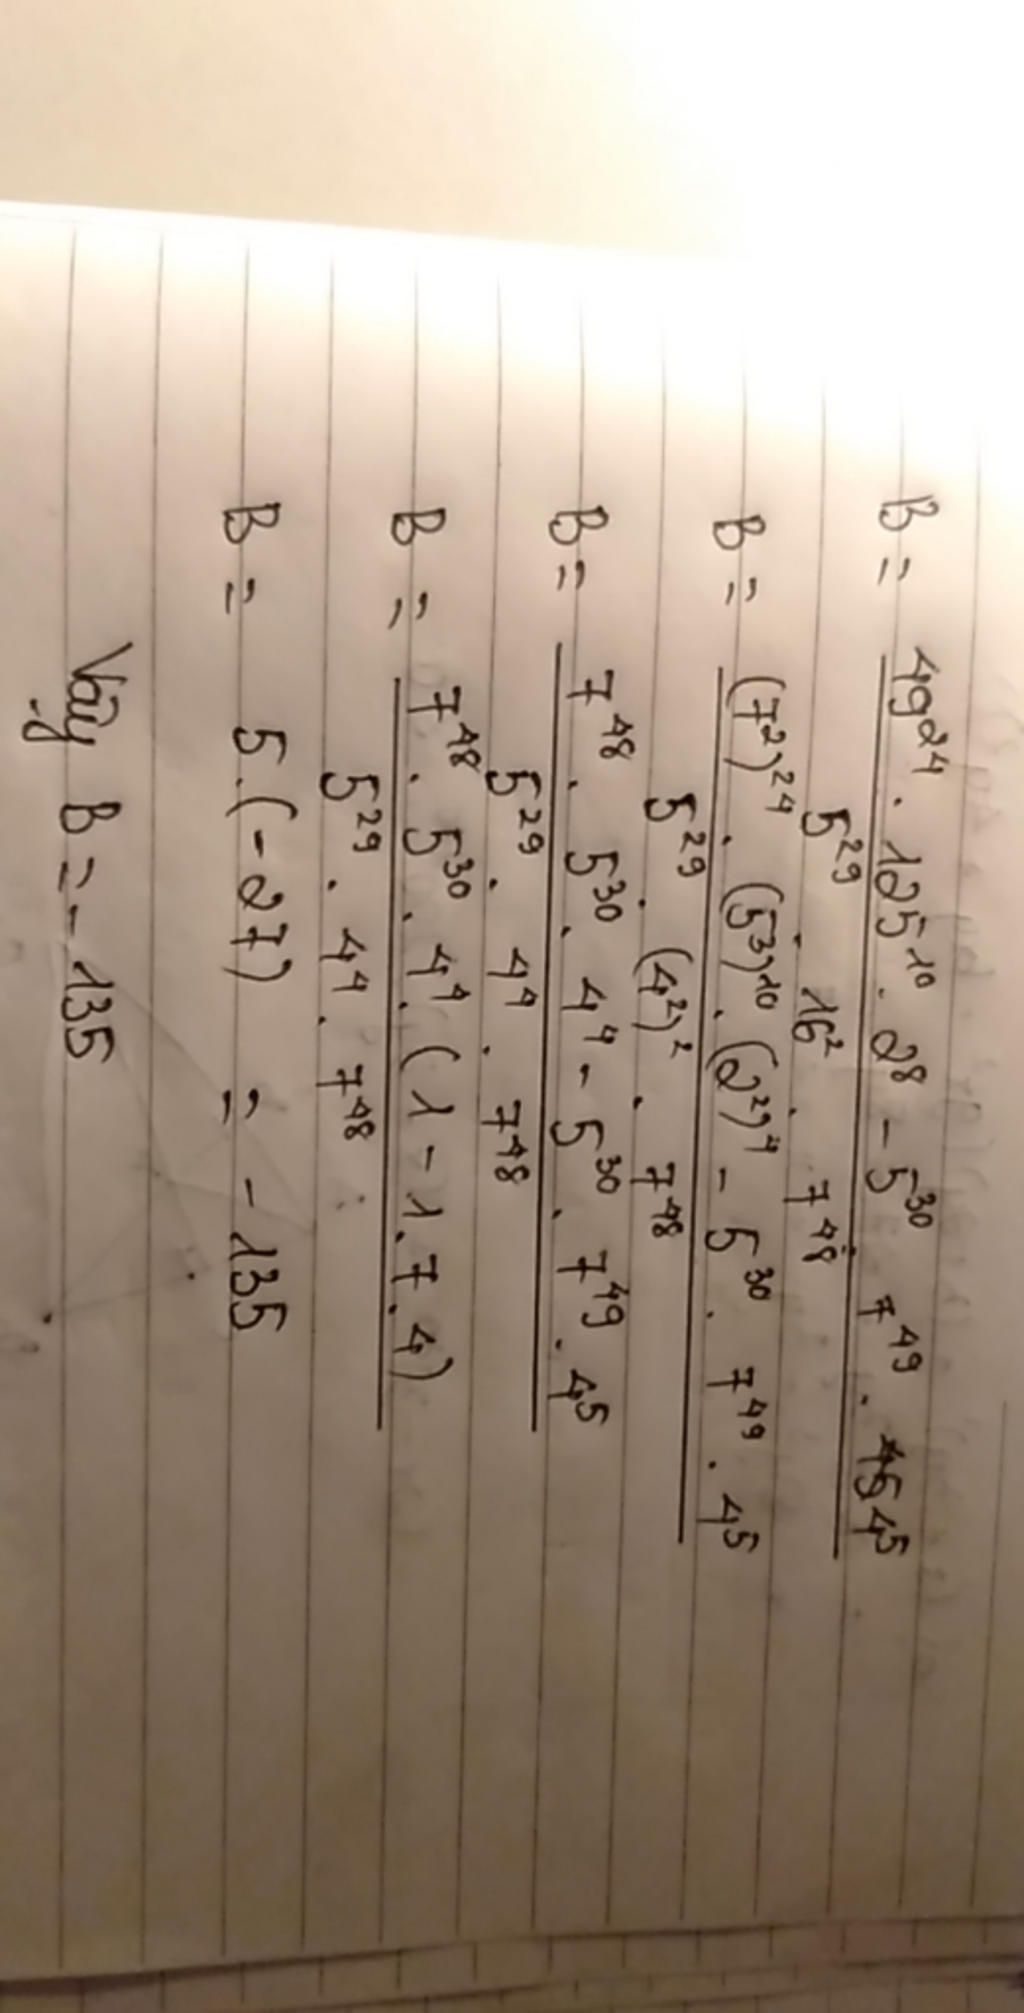 B = 49²⁴ . 125¹⁰ . 2⁸ - 5³⁰ . 7⁴⁹ . 4⁵
5²⁹ . 16² . 7⁴⁸
B = (7²)²⁴ . (5³)¹⁰ . (2²)⁴ - 5³⁰ . 7⁴⁹ . 4⁵
5²⁹ . (4²)² . 7⁴⁸
B = 7⁴⁸ . 5³⁰ . 4⁴ - 5³⁰ . 7⁴⁹ . 4⁵
5²⁹ . 4⁴ . 7⁴⁸
B = 7⁴⁸ . 5³⁰ . 4⁴ . (1 - 1 . 7 . 4)
5²⁹ . 4⁴ . 7⁴⁸
B = 5 . (-27) = -135
Vậy B = -135